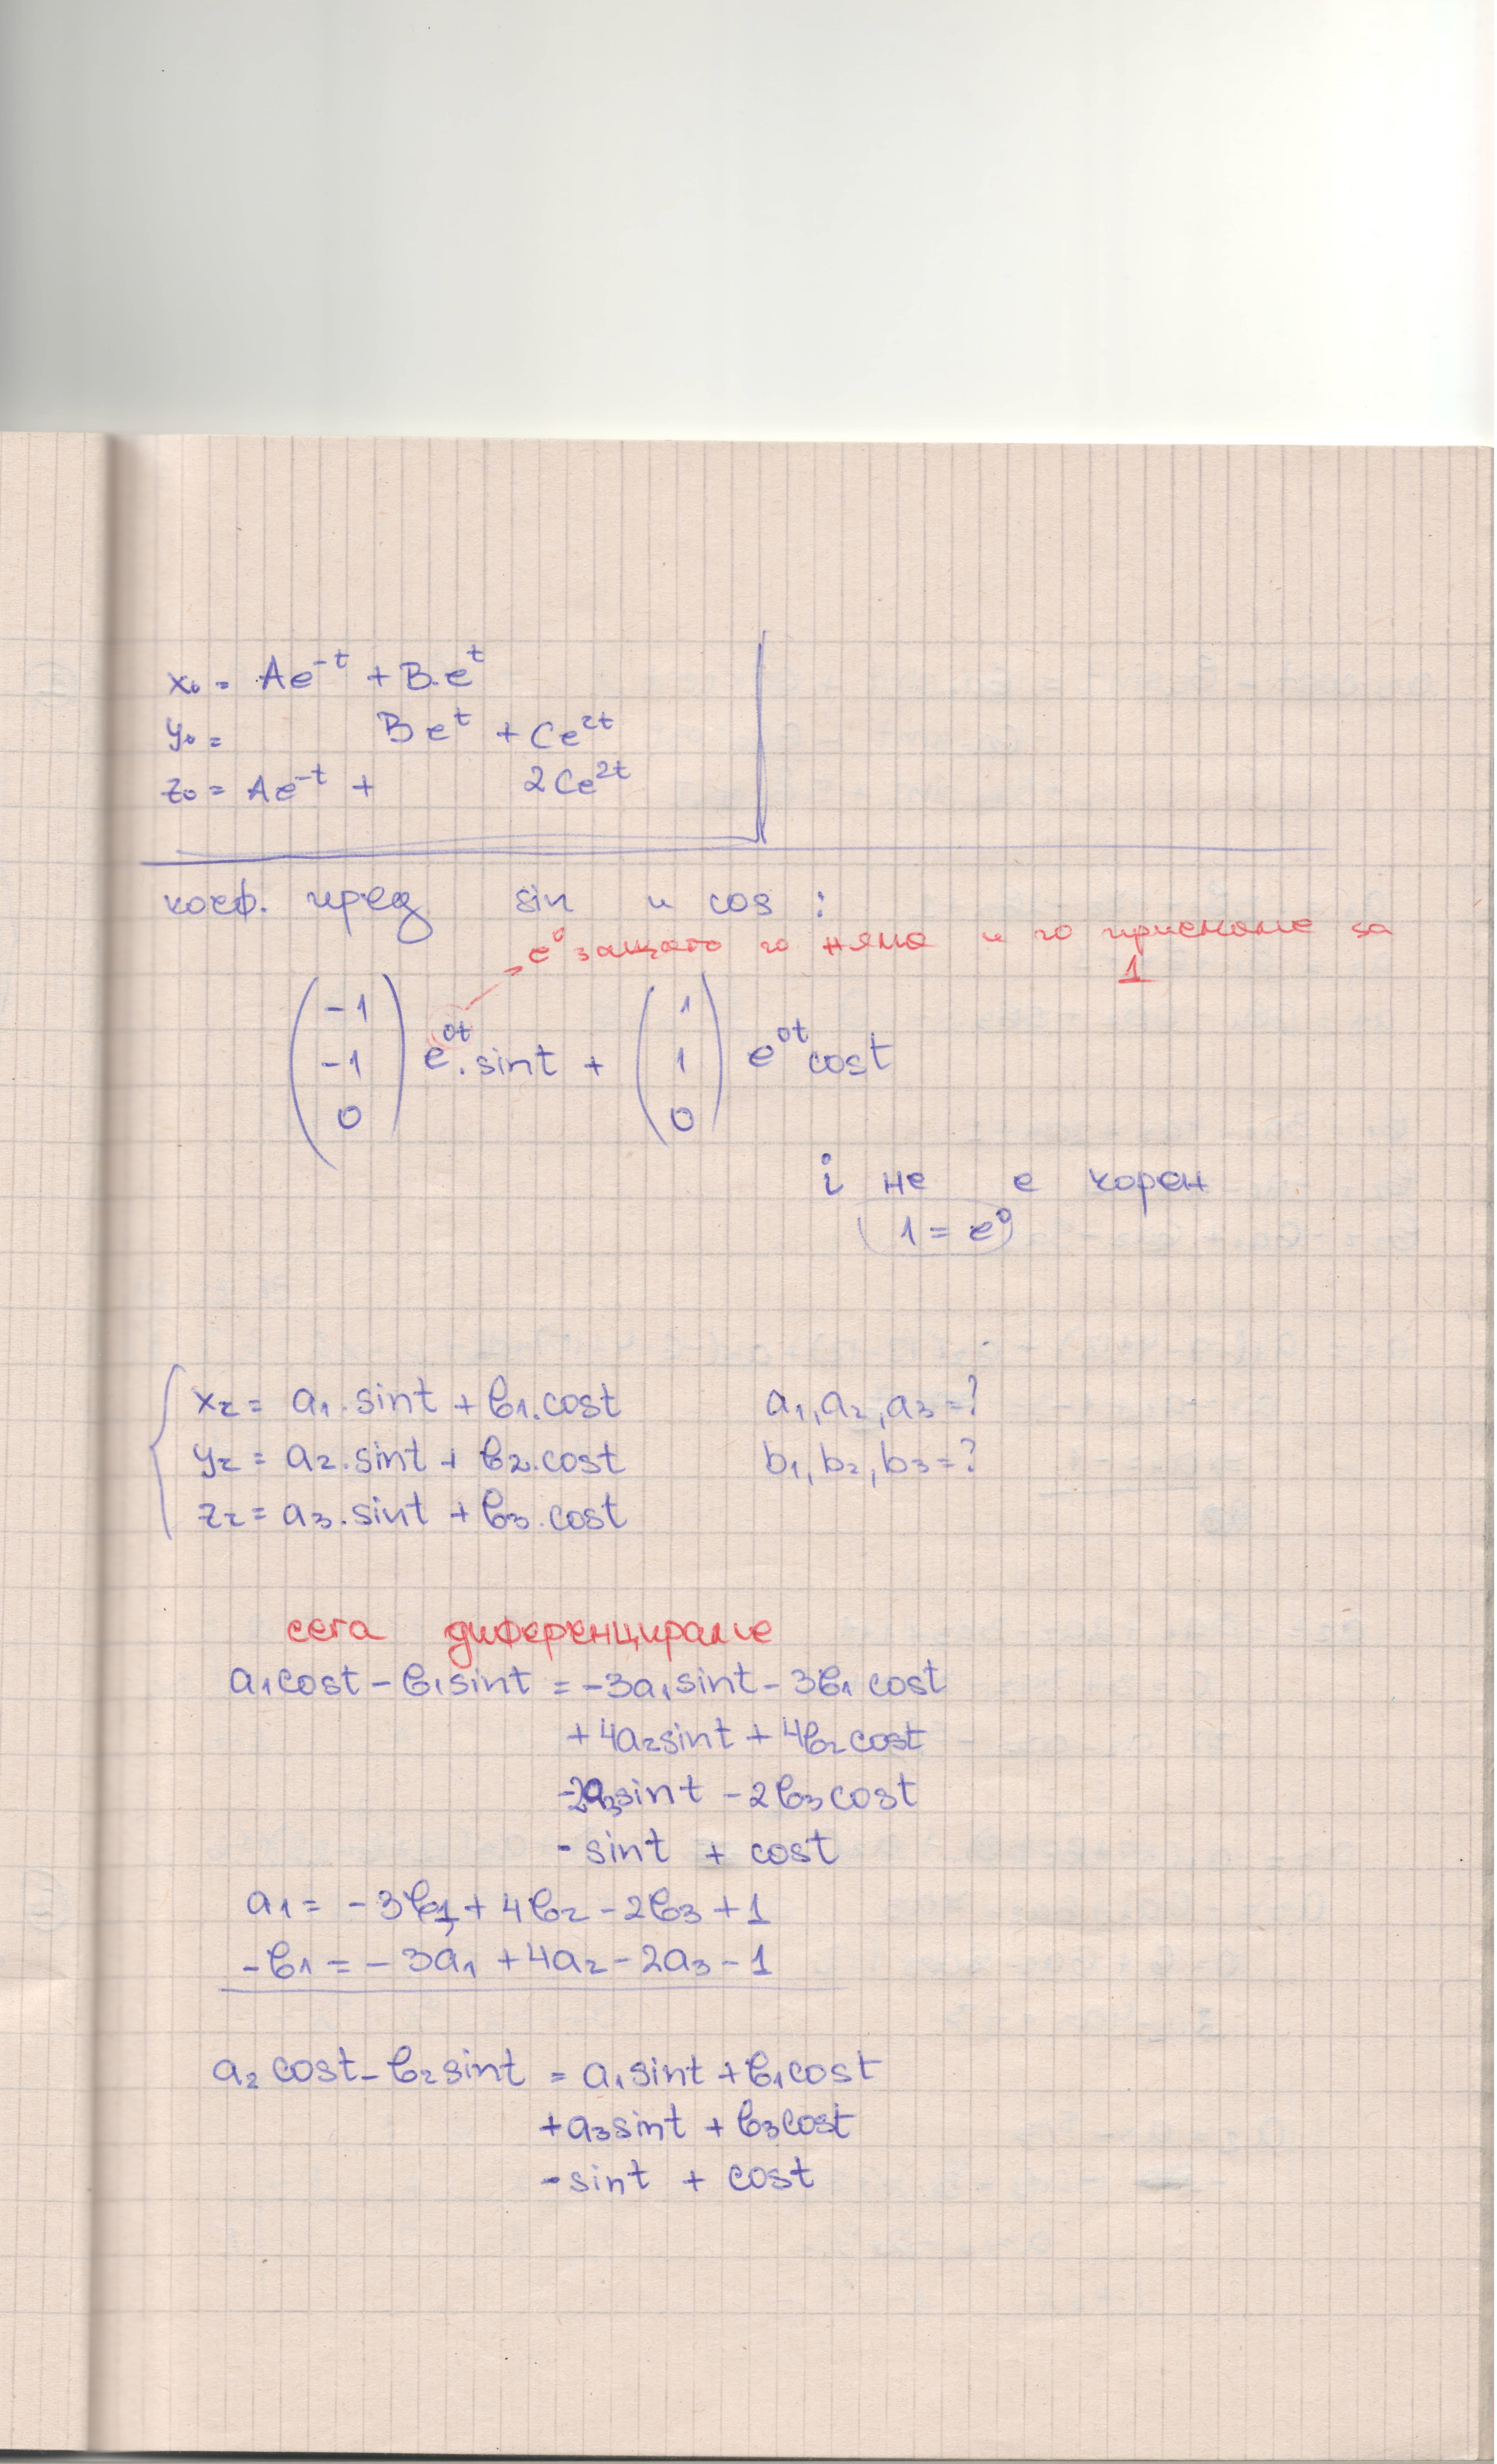 x₀ = Ae⁻ᵗ + B.eᵗ
y₀ = Beᵗ + Ce²ᵗ
z₀ = Ae⁻ᵗ + 2Ce²ᵗ
коеф. пред sin и cos :
e⁰ защото го няма и го приемаме за
1
(-1 -1 0) e⁰ᵗ.sint + (1 1 0) e⁰ᵗcost
i не е корен
(1 = e⁰)
xᵣ = a₁.sint + b₁.cost a₁, a₂, a₃ = ?
yᵣ = a₂.sint + b₂.cost b₁, b₂, b₃ = ?
zᵣ = a₃.sint + b₃.cost
сега диференцираме
a₁cost - b₁sint = -3a₁sint - 3b₁cost
+4a₂sint + 4b₂cost
-2a₃sint - 2b₃cost
- sint + cost
a₁ = -3b₁ + 4b₂ - 2b₃ + 1
-b₁ = -3a₁ + 4a₂ - 2a₃ - 1
a₂cost - b₂sint = a₁sint + b₁cost
+a₃sint + b₃cost
-sint + cost